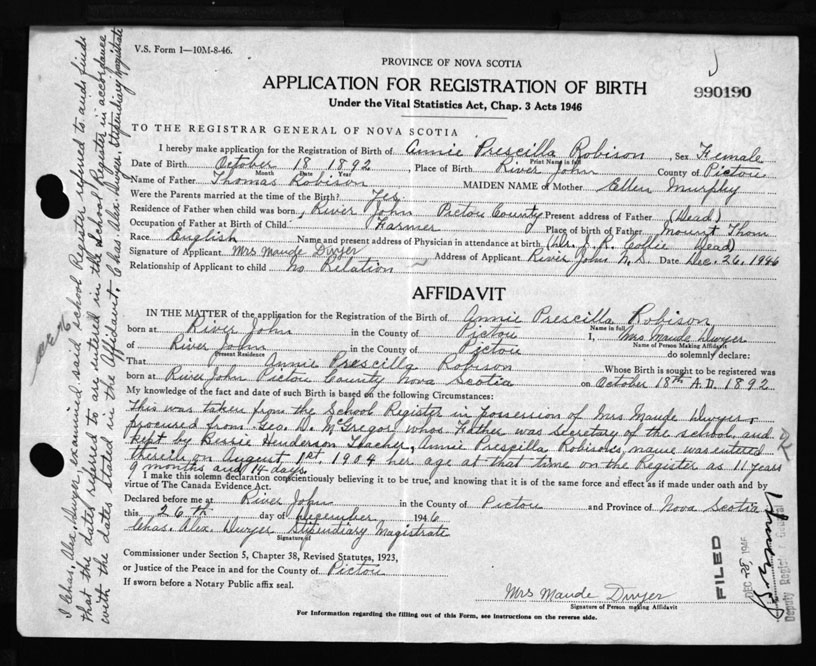 V.S. Form 1—10M-8-46.
PROVINCE OF NOVA SCOTIA
APPLICATION FOR REGISTRATION OF BIRTH
990190
Under the Vital Statistics Act, Chap. 3 Acts 1946
TO THE REGISTRAR GENERAL OF NOVA SCOTIA
I hereby make application for the Registration of Birth of Annie Prescilla Robison, Sex Female
Print Name in full
Date of Birth October 18 1892, Place of Birth River John County of Pictou
Month Date Year
Name of Father Thomas Robison MAIDEN NAME of Mother Ellen Murphy
Were the Parents married at the time of the Birth? Yes
Residence of Father when child was born, River John Pictou County Present address of Father (Dead)
Occupation of Father at Birth of Child Farmer Place of birth of Father Mount Thom
Race English Name and present address of Physician in attendance at birth (Dr. J. R. Collie Dead)
Signature of Applicant Mrs Maude Dwyer Address of Applicant River John N.S. Date Dec. 26, 1946
Relationship of Applicant to child No Relation
AFFIDAVIT
IN THE MATTER of the application for the Registration of the Birth of Annie Prescilla Robison
Name in full
born at River John in the County of Pictou I, Mrs Maude Dwyer
Name of Person Making Affidavit
of River John in the County of Pictou do solemnly declare:
Present Residence
That Annie Prescilla Robison Whose Birth is sought to be registered was
born at River John Pictou County Nova Scotia on October 18th A.D. 1892
My knowledge of the fact and date of such Birth is based on the following Circumstances:
This was taken from the School Register in possession of Mrs Maude Dwyer,
procured from Geo. D. McGregor whos Father was Secretary of the school, and
kept by Bessie Henderson Teacher, Annie Prescilla Robison's name was entered
therein on August 1st 1904 her age at that time on the Register as 11 years
9 months and 14 days.
I make this solemn declaration conscientiously believing it to be true, and knowing that it is of the same force and effect as if made under oath and by
virtue of The Canada Evidence Act.
Declared before me at River John in the County of Pictou and Province of Nova Scotia
this 26th day of December 1946
Chas. Alex. Dwyer Stipendiary Magistrate
Signature of
Commissioner under Section 5, Chapter 38, Revised Statutes, 1923,
or Justice of the Peace in and for the County of Pictou
If sworn before a Notary Public affix seal.
Mrs Maude Dwyer
Signature of Person making Affidavit
For Information regarding the filling out of this Form, see instructions on the reverse side.
FILED
DEC 28 1946
Deputy Registrar General
I Chas. Alex. Dwyer, examined said school Register referred to and find
that the dates referred to are entered in the School Register in accordance
with the dates stated in the Affidavit. Chas. Alex. Dwyer, Stipendiary Magistrate